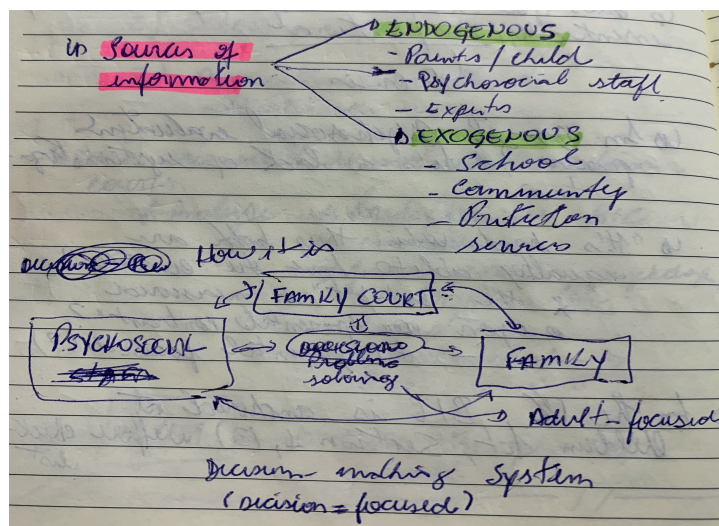 ENDOGENOUS
Sources of
information
- Parents / child
- Psychosocial staff
- Experts
EXOGENOUS
- School
- Community
- Protection
services
How it is
FAMILY COURT
PSYCHOSOCIAL
Problem
solving
FAMILY
Adult-focused
Decision-making System
(Decision = focused)